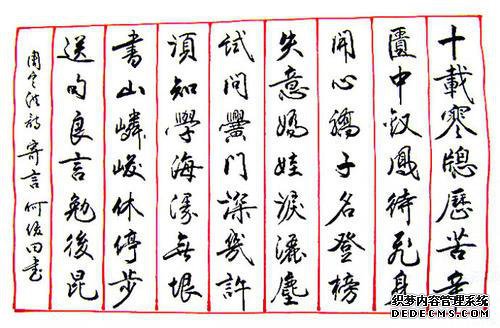 十載寒牕歷苦辛
匱中釵鳳待飛身
開心驕子名登榜
失意嬌娃淚灑塵
試問黌門深幾許
須知學海無垠
書山嶙峻休停步
送句良言勉後昆
周詩寄言何田書
织梦内容管理系统
DEDECMS.COM